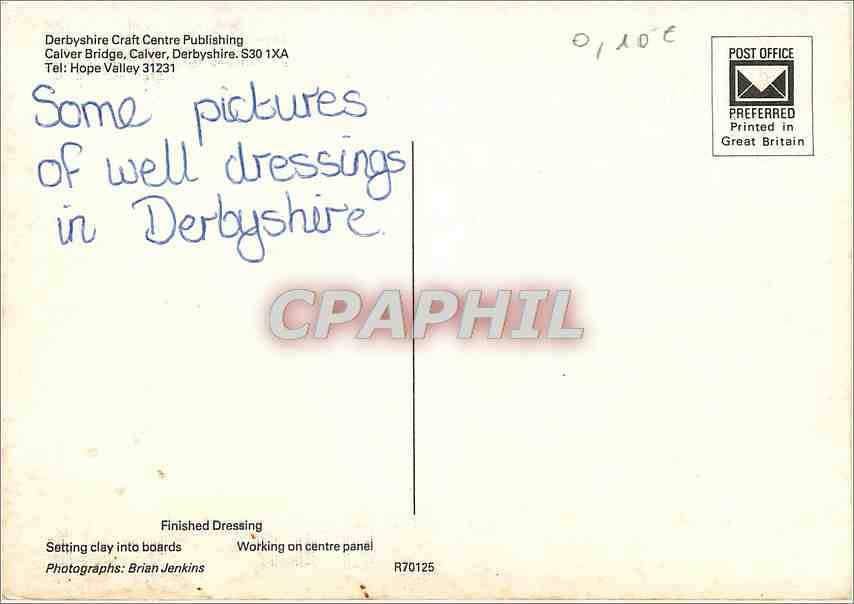 Derbyshire Craft Centre Publishing
Calver Bridge, Calver, Derbyshire. S30 1XA
Tel: Hope Valley 31231
0,10€
POST OFFICE
PREFERRED
Printed in
Great Britain
Some pictures
of well dressings
in Derbyshire.
CPAPHIL
Finished Dressing
Setting clay into boards Working on centre panel
Photographs: Brian Jenkins R70125